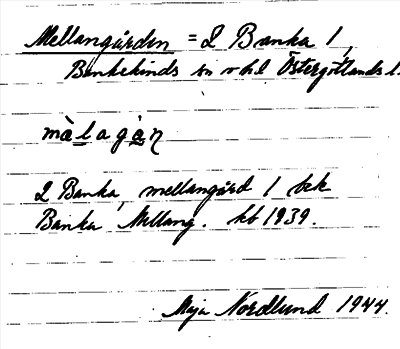 Mellangården = 2 Banka 1,
Bankekinds sn o hd Östergötlands l.
mà̀lagà̀ṇ
2 Banka, mellangård 1 bek
Banka Mellang. kb 1939.
Maja Nordlund 1944.